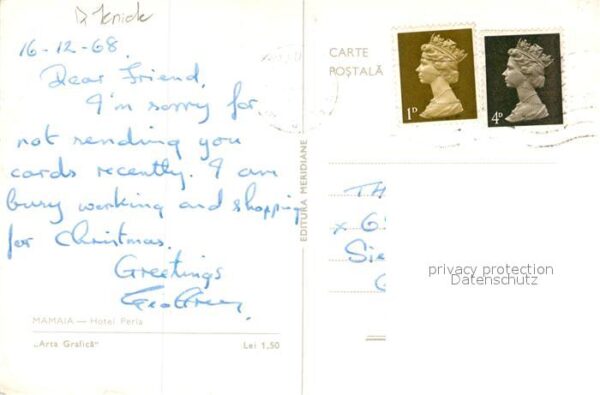 16-12-68.
Dear Friend,
I'm sorry for
not sending you
cards recently. I am
busy working and shopping
for Christmas.
Greetings
Geoffrey.
MAMAIA — Hotel Perla
„Arta Grafică" Lei 1,50
EDITURA MERIDIANE
CARTE
POŞTALĂ
1D
4D
TH
x 6
Sie
privacy protection
Datenschutz